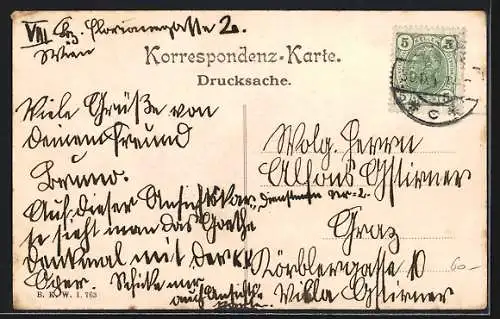 VIII Bz. Florianigasse 2.
Wien
Korrespondenz-Karte.
Drucksache.
5 5
Viele Grüße von
deinem Freund
Bruno.
Auf dieser Ansichtskar
te sieht man das Goethe
denkmal mit der k.k.
Oper. Schicke mir
auch Ansichts
karten.
Wolg. Herrn
Alfons Gstirner
Graz
Körblergasse 10
Villa Gstirner
60-
B. K. W. I. 763